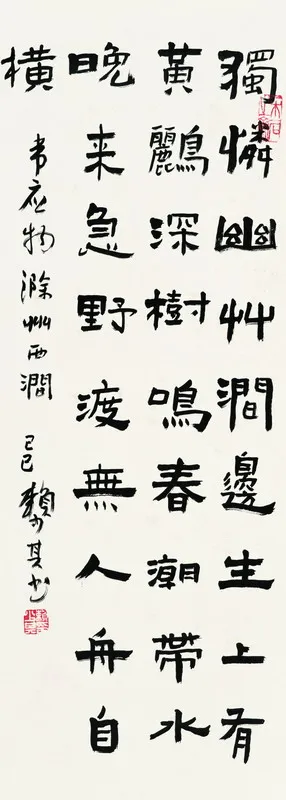 獨憐幽艸澗邊生上有
黃鸝深樹鳴春潮帶水
晚来急野渡無人舟自
橫
韦应物滁州西澗
己巳賴少其书